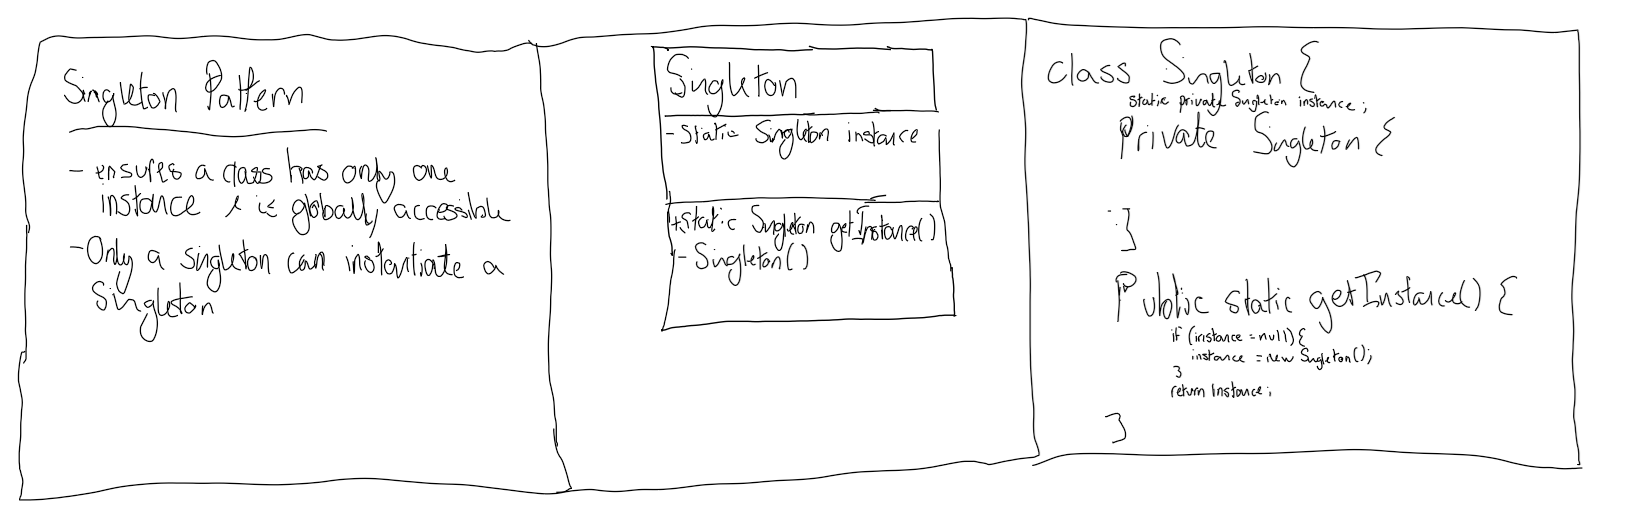 Singleton Pattern
- ensures a class has only one
instance & is globally accessible
- Only a singleton can instantiate a
Singleton
Singleton
- Static Singleton instance
+ Static Singleton getInstance()
- Singleton()
class Singleton {
static private Singleton instance;
Private Singleton {
}
Public static getInstance() {
if (instance = null) {
instance = new Singleton();
}
return instance;
}